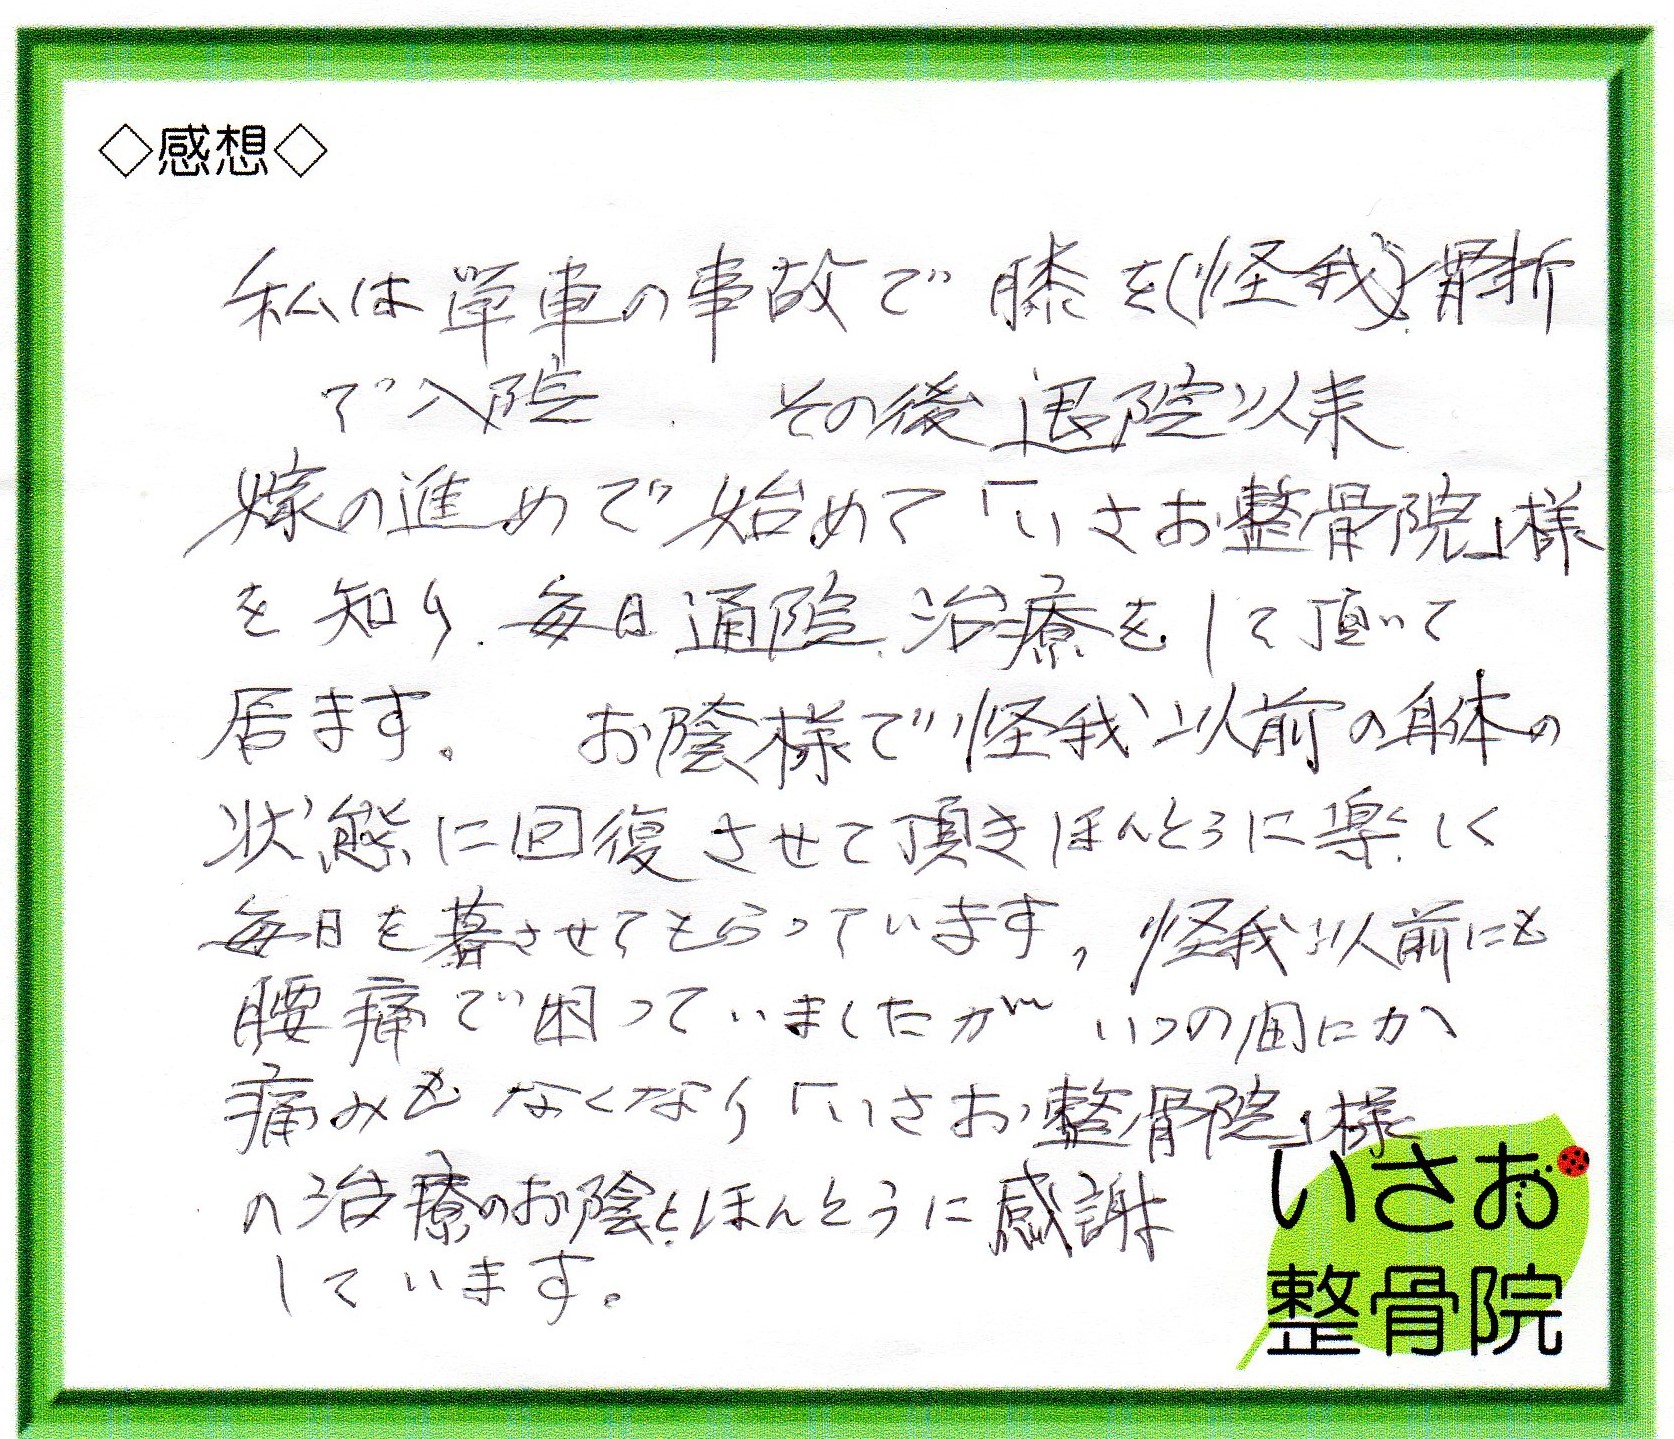 ◇感想◇
私は単車の事故で膝を(怪我)骨折
で入院. その後退院以来
嫁の進めで始めて「いさお整骨院」様
を知り、毎日通院、治療をして頂いて
居ます。 お陰様で怪我以前の身体の
状態に回復させて頂きほんとうに楽しく
毎日を暮させてもらっています,怪我以前にも
腰痛で困っていましたが いつの間にか
痛みもなくなり「いさお整骨院」様
の治療のお陰とほんとうに感謝
しています。
いさお
整骨院